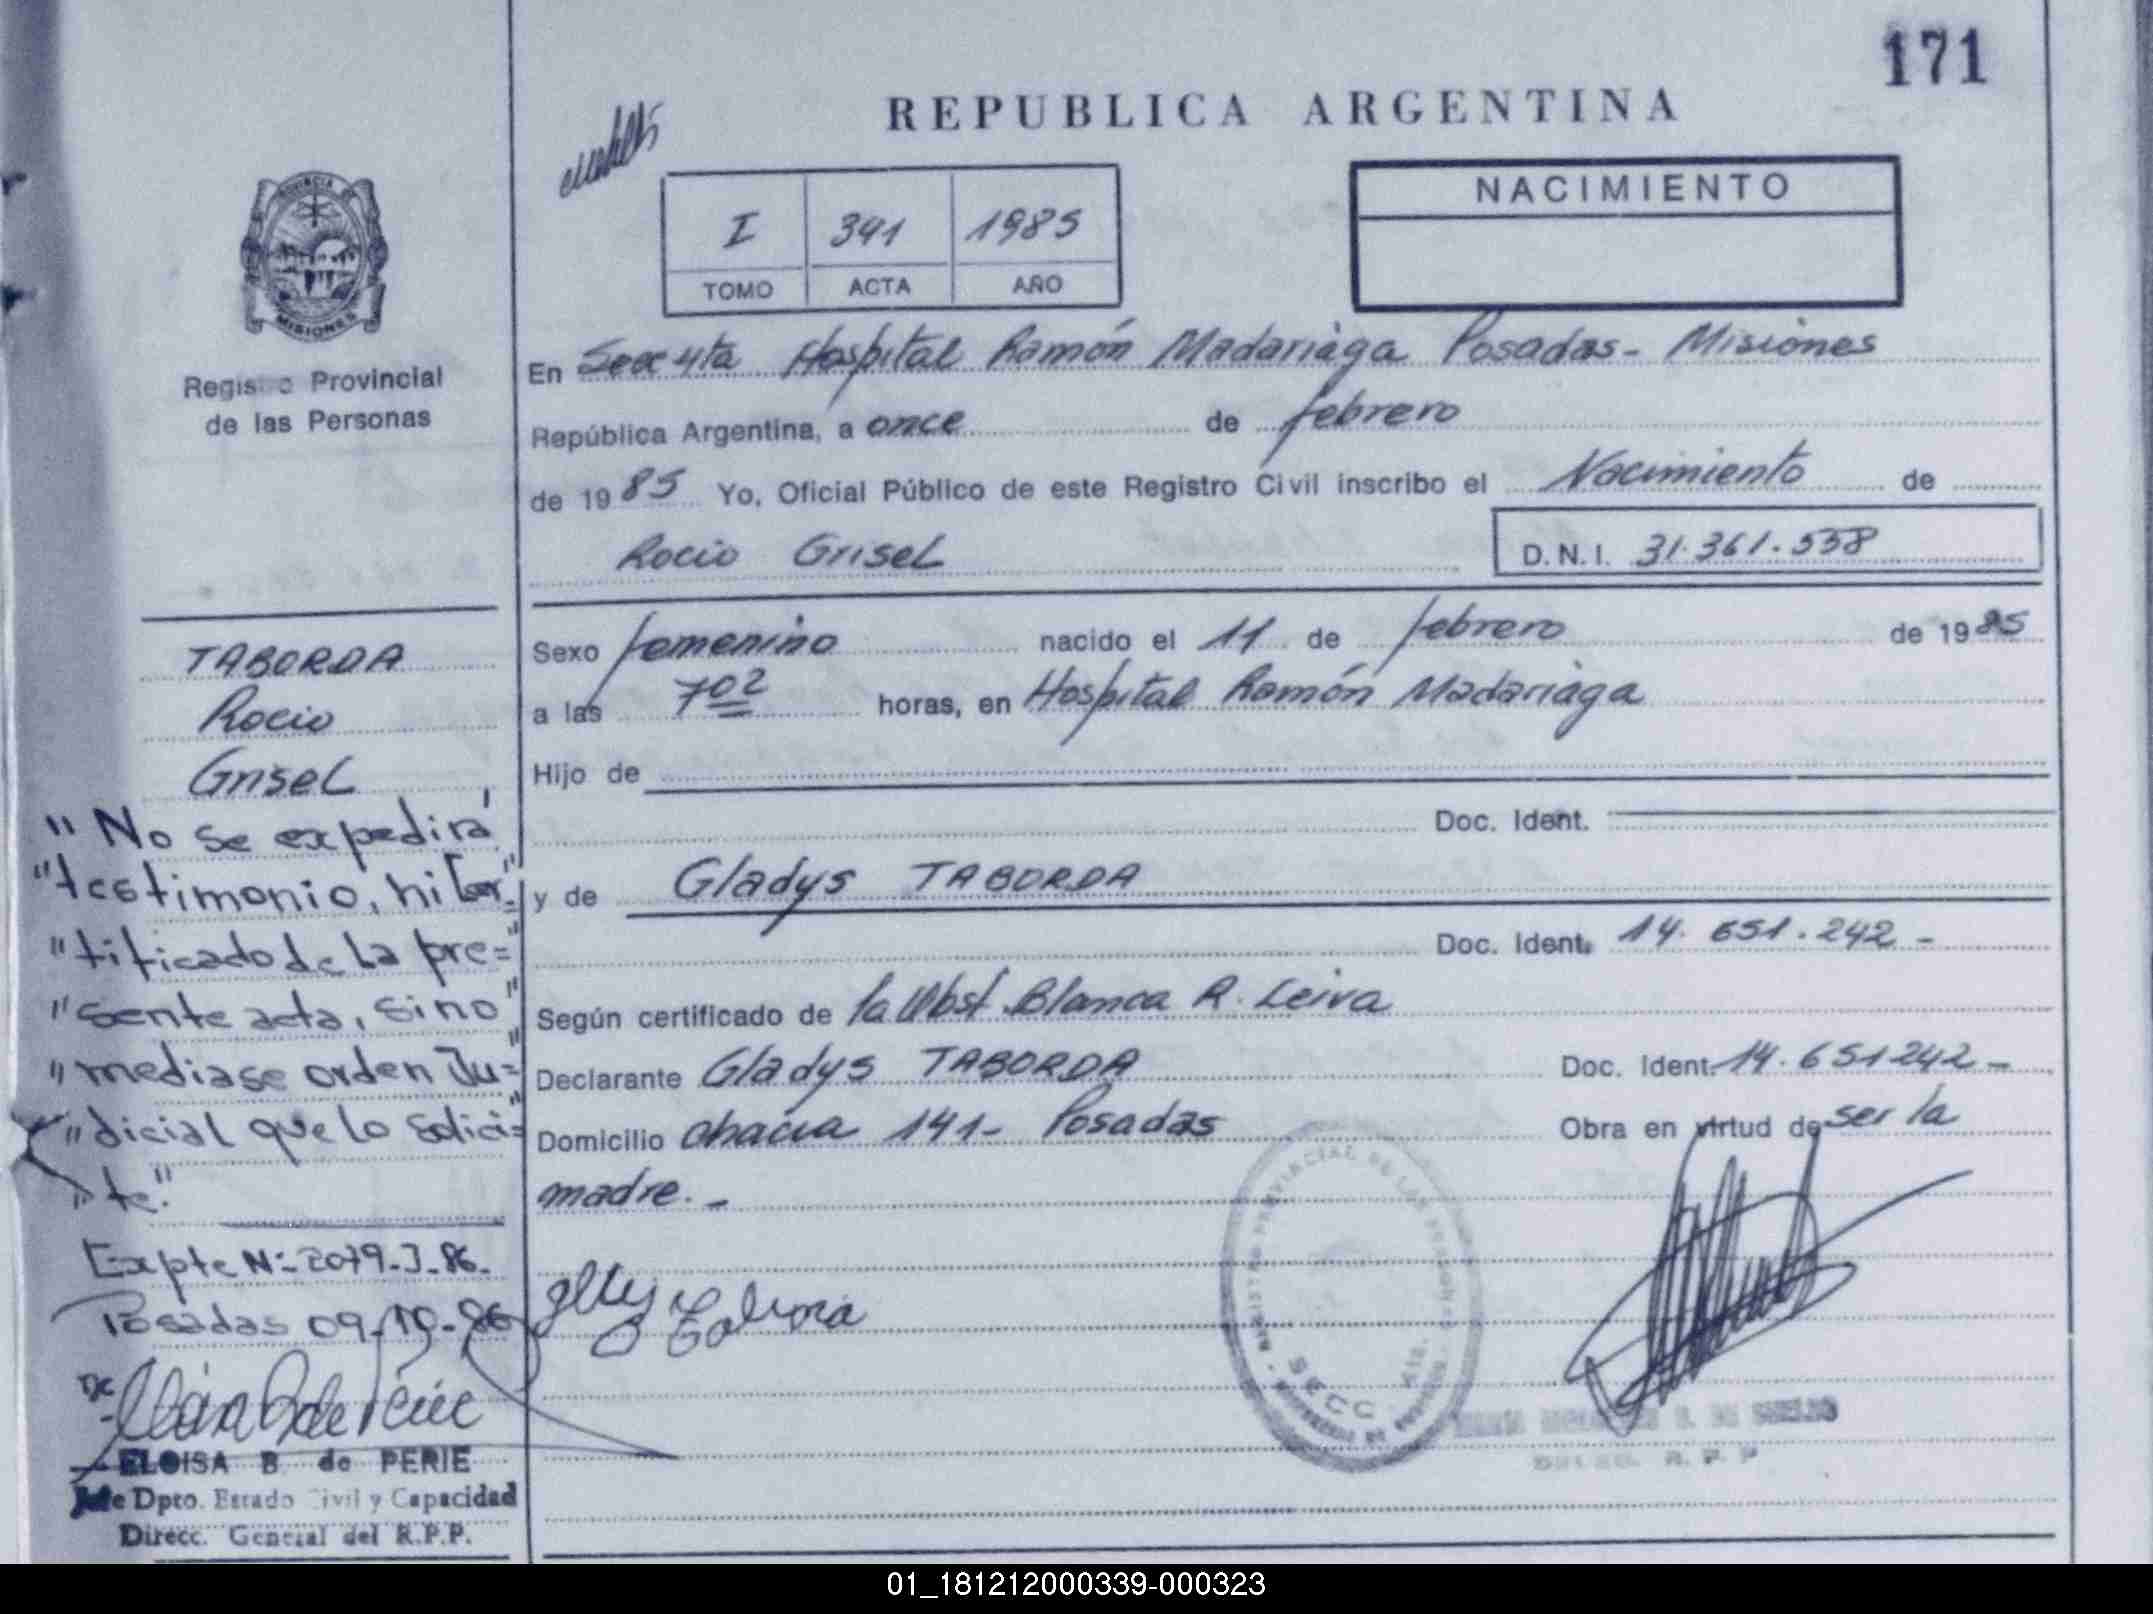 171
REPUBLICA ARGENTINA
I 341 1985
TOMO ACTA AÑO
NACIMIENTO
PROVINCIA DE
MISIONES
Registro Provincial
de las Personas
En Secc 4ta Hospital Ramón Madariaga Posadas - Misiones
República Argentina, a once de febrero
de 1985 Yo, Oficial Público de este Registro Civil inscribo el Nacimiento de
Rocio Grisel D.N.I. 31.361.538
Sexo femenino nacido el 11 de febrero de 1985
a las 702 horas, en Hospital Ramón Madariaga
Hijo de
Doc. Ident.
y de Gladys TABORDA
Doc. Ident. 14.651.242 -
Según certificado de la Obst. Blanca R. Leiva
Declarante Gladys TABORDA Doc. Ident. 14.651242 -
Domicilio chacra 141- Posadas Obra en virtud de ser la
madre. -
TABORDA
Rocio
Grisel
"No se expedirá
"testimonio, ni cer-"
"tificado de la pre="
"sente acta, sino"
"mediase orden Ju="
"dicial que lo solici="
"te."
Expte Nº 2079-J-86.
Posadas 09-10-86
ELOISA B de PERIE
Jefe Dpto. Estado Civil y Capacidad
Direcc. General del R.P.P.
SECC
R. P. P
01_181212000339-000323